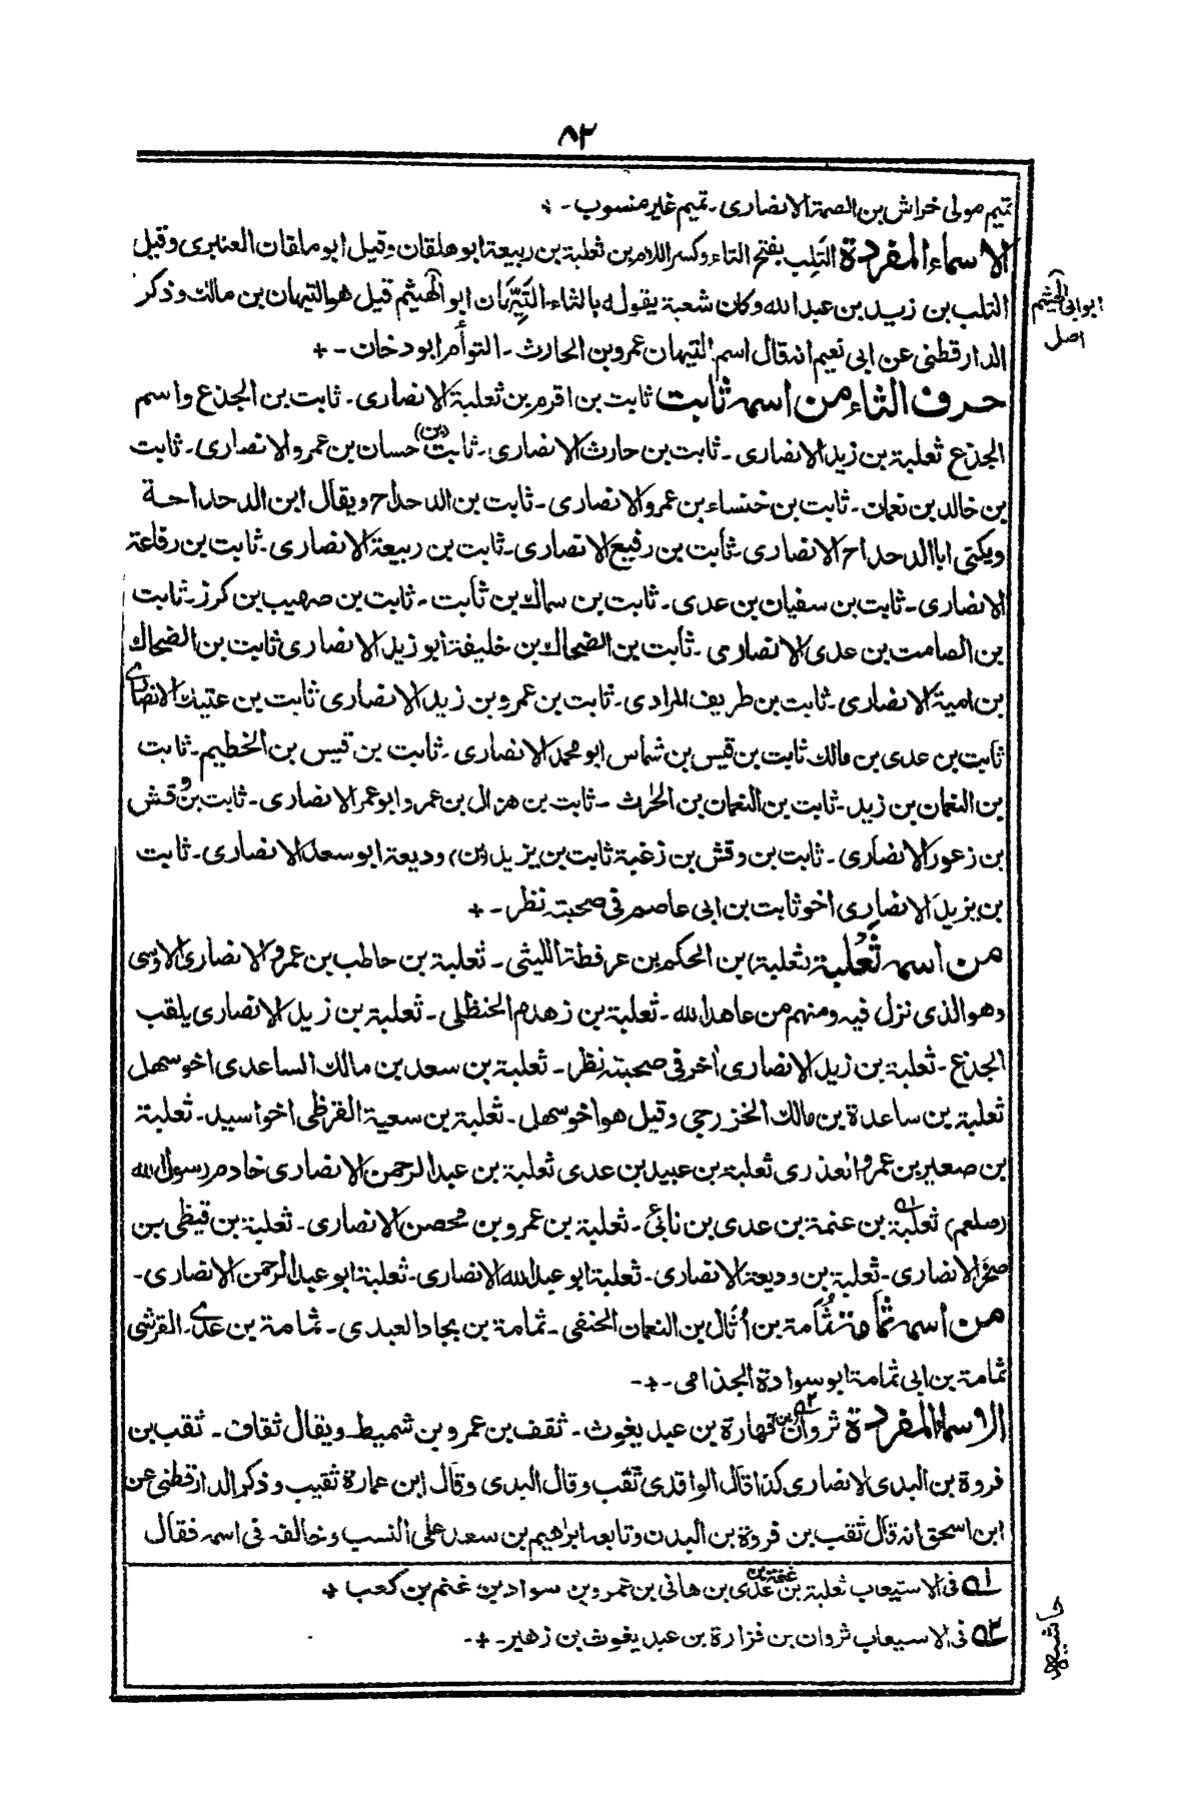 ٨٢
تميم مولى خراش بن الصمة الانصارى۔ تميم غير منسوب۔ +
الاسماء المفردة التَلِب بفتح التاء وكسر اللام بن ثعلبة بن ربيعة ابو هلقان وقيل ابو ملقان العنبرى وقيل
التلب بن زيد بن عبد الله وكان شعبة يقوله بالثاء۔ التَيِّهَان ابو الهيثم قيل هو التيهان بن مالك وذكر
ابو ابى الهيثم
اصل
الدارقطنى عن ابى نعيم انه قال اسم التيهان عمرو بن الحارث۔ التوأم ابو دخان۔ +
حرف الثاء من اسمه ثابت ثابت بن اقرم بن ثعلبة الانصارى۔ ثابت بن الجذع واسم
الجذع ثعلبة بن زيد الانصارى۔ ثابت بن حارث الانصارى۔ ثابت (بن) حسان بن عمرو الانصارى۔ ثابت
بن خالد بن نعمان۔ ثابت بن خنساء بن عمرو الانصارى۔ ثابت بن الدحداح ويقال ابن الدحداحة
ويكنى ابا الدحداح الانصارى۔ ثابت بن رفيع الانصارى۔ ثابت بن ربيعة الانصارى۔ ثابت بن رفاعة
الانصارى۔ ثابت بن سفيان بن عدى۔ ثابت بن سماك بن ثابت۔ ثابت بن صهيب بن كرز۔ ثابت
بن الصامت بن عدى الانصارى۔ ثابت بن الضحاك بن خليفة ابو زيد الانصارى ثابت بن الضحاك
بن امية الانصارى۔ ثابت بن طريف المرادى۔ ثابت بن عمرو بن زيد الانصارى ثابت بن عتيك الانصارى
ثابت بن عدى بن مالك ثابت بن قيس بن شماس ابو محمد الانصارى۔ ثابت بن قيس بن الخطيم۔ ثابت
بن النعمان بن زيد۔ ثابت بن النعمان بن الحٰرث۔ ثابت بن هزال بن عمرو ابو عمر الانصارى۔ ثابت بن وقش
بن زعور الانصارى۔ ثابت بن وقش بن زغبة ثابت بن يزيد (بن) وديعة ابو سعد الانصارى۔ ثابت
بن يزيد الانصارى اخو ثابت بن ابى عاصم فى صحبته نظر۔ +
من اسمه ثَعْلَبة (ثعلبة) بن الحكم بن عرفطة الليثى۔ ثعلبة بن حاطب بن عمرو الانصارى الاوسى
وهو الذى نزل فيه ومنهم من عاهد الله۔ ثعلبة بن زهدم الحنظلى۔ ثعلبة بن زيد الانصارى يلقب
الجذع۔ ثعلبة بن زيد الانصارى آخر فى صحبته نظر۔ ثعلبة بن سعد بن مالك الساعدى اخو سهل
ثعلبة بن ساعدة بن مالك الخزرجى وقيل هو اخو سهل۔ ثعلبة بن سعية القرظى اخو اسيد۔ ثعلبة
بن صعير بن عمرو العذرى ثعلبة بن عبيد بن عدى ثعلبة بن عبد الرحمن الانصارى خادم رسول الله
(صلعم) ثعلبة ١ بن عنمة بن عدى بن نابئ۔ ثعلبة بن عمرو بن محصن الانصارى۔ ثعلبة بن قيظى بن
صخر الانصارى۔ ثعلبة بن وديعة الانصارى۔ ثعلبة ابو عبد الله الانصارى۔ ثعلبة ابو عبد الرحمن الانصارى۔
من اسمه ثمامة ثُمَامة بن اُثَال بن النعمان الحنفى۔ ثمامة بن بجاد العبدى۔ ثمامة بن عدى القرشى
ثمامة بن ابى ثمامة ابو سوادة الجذامى۔ +۔
الاسماء المفردة ثروان ٢ (بن) قهارة بن عبد يغوث۔ ثقف بن عمرو بن شميط ويقال ثقاف۔ ثقب بن
فروة بن البدى الانصارى كذا قال الواقدى ثقب وقال البدى وقال ابن عمارة ثقيب وذكر الدارقطنى عن
ابن اسحق انه قال ثقب بن فروة بن البدن وتابعه ابراهيم بن سعد على النسب وخالفه فى اسمه فقال
١ فى الاستيعاب ثعلبة بن غنمة بن عدى بن هانى بن عمرو بن سواد بن غنم بن كعب +
٢ فى الاسيعاب ثروان بن فزارة بن عبد يغوث بن زهير۔ +۔
حاشيه